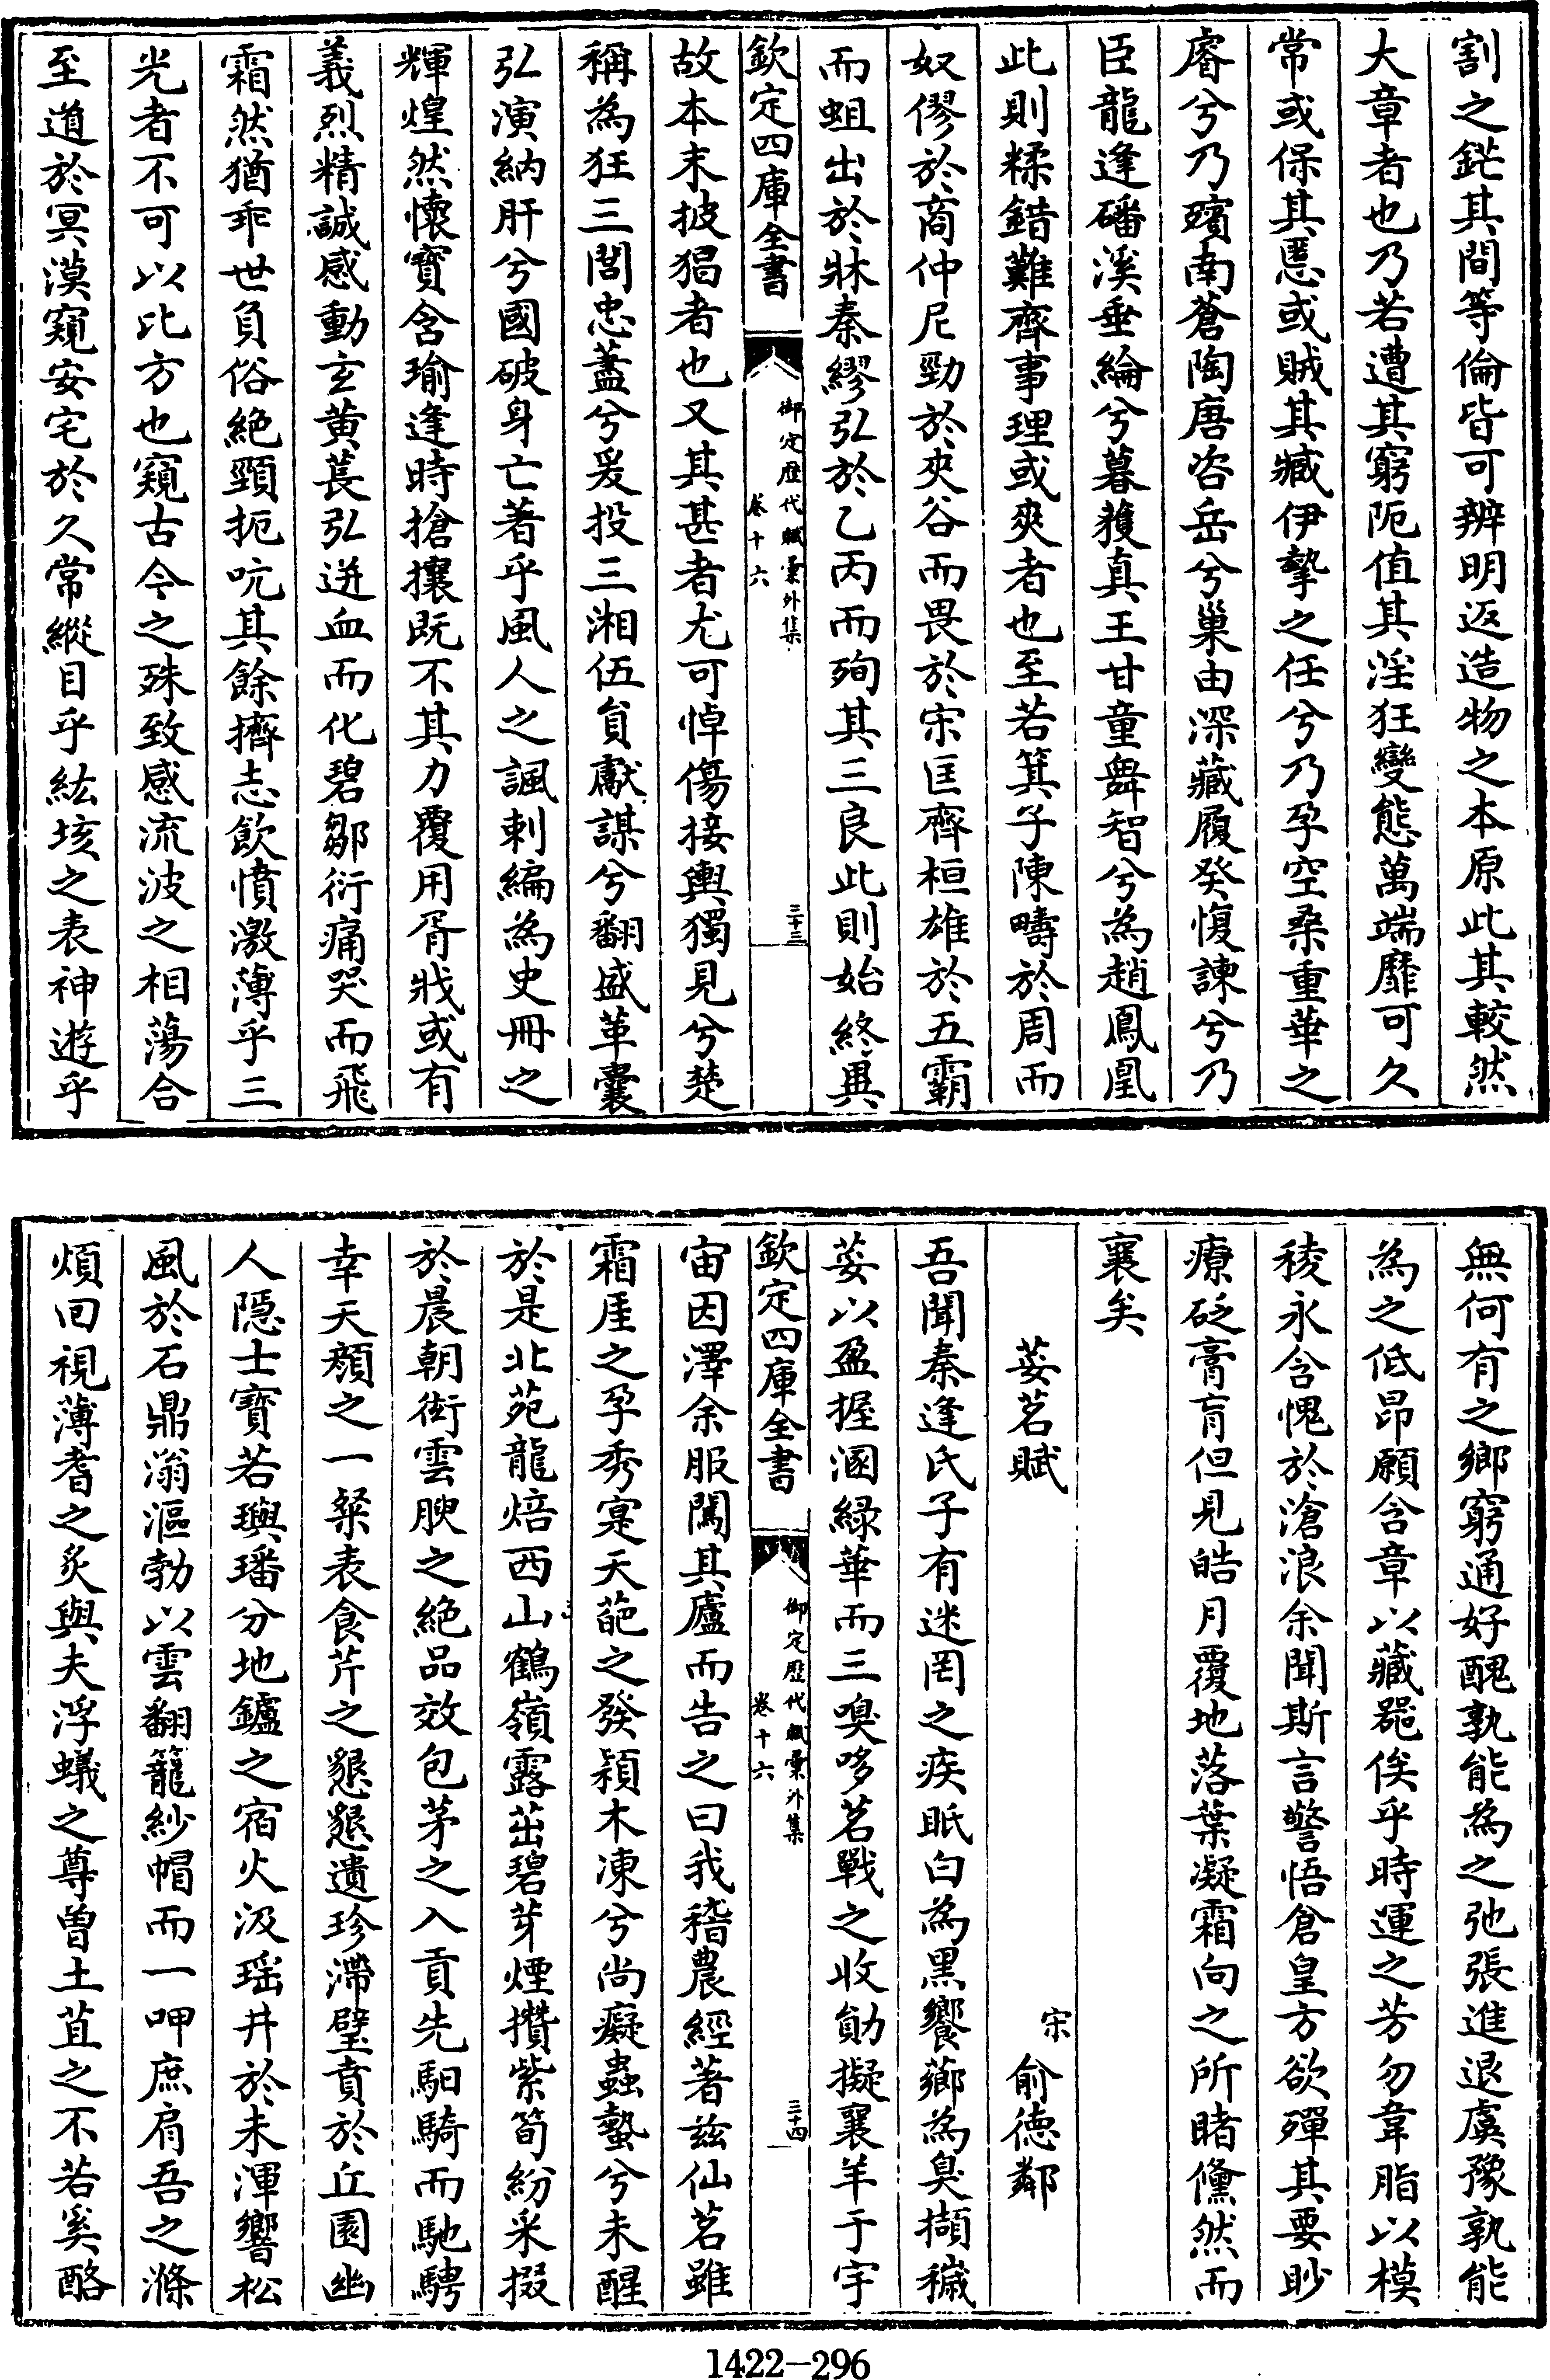 割之鋩其間等倫皆可辨明返造物之本原此其較然
大章者也乃若遭其窮阨值其淫狂變態萬端靡可久
常或保其慝或賊其臧伊摯之任兮乃孕空桑重華之
睿兮乃殯南蒼陶唐咨岳兮巢由深藏履癸愎諫兮乃
臣龍逢磻溪垂綸兮暮獲真王甘童舞智兮為趙鳳凰
此則糅錯難齊事理或爽者也至若箕子陳疇於周而
奴僇於商仲尼勁於夾谷而畏於宋匡齊桓雄於五霸
而蛆出於牀秦繆弘於乙丙而殉其三良此則始終異
欽定四庫全書
御定歷代賦彙外集
卷十六
三十三
故本末披猖者也又其甚者尤可悼傷接輿獨見兮楚
稱為狂三閭忠藎兮爰投三湘伍員獻謀兮翻盛革囊
弘演納肝兮國破身亡著乎風人之諷刺編為史冊之
輝煌然懷寶含瑜逢時搶攘既不其力覆用胥戕或有
義烈精誠感動玄黃萇弘迸血而化碧鄒衍痛哭而飛
霜然猶乖世負俗絶頸扼吭其餘擠志飲憤激薄乎三
光者不可以比方也窺古今之殊致感流波之相蕩合
至道於冥漠窺安宅於久常縱目乎紘垓之表神遊乎
無何有之鄉窮通好醜孰能為之弛張進退虞豫孰能
為之低昂願含章以藏器俟乎時運之芳勿韋脂以模
稜永含愧於滄浪余聞斯言警悟倉皇方欲殫其要眇
療砭膏肓但見皓月覆地落葉凝霜向之所睹儻然而
襄矣
荽茗賦
宋 俞德鄰
吾聞秦逢氏子有迷罔之疾眂白為黑饗薌為臭擷穢
荽以盈握溷緑華而三嗅哆茗戰之收勛擬襄羊于宇
欽定四庫全書
御定歷代賦彙外集
卷十六
三十四
宙因澤余服闖其廬而告之曰我稽農經著兹仙茗雖
霜厓之孕秀寔天葩之發潁木凍兮尚癡蟲蟄兮未醒
於是北苑龍焙西山鶴嶺露茁碧芽煙攢紫筍紛采掇
於晨朝衒雲腴之絶品效包茅之入貢先馹騎而馳騁
幸天顔之一粲表食芹之懇懇遺珍滯璧賁於丘園幽
人隱士寶若璵璠分地鑪之宿火汲瑶井於未渾響松
風於石鼎滃漚勃以雲翻籠紗帽而一呷庶肩吾之滌
煩回視薄耆之炙與夫浮蟻之尊曽土苴之不若奚酪
1422—296